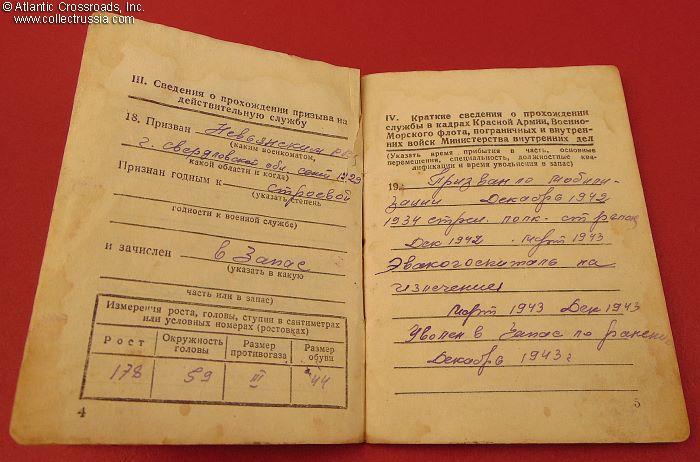 © Atlantic Crossroads, Inc.
www.collectrussia.com
III. Сведения о прохождении призыва на
действительную службу
18. Призван Невьянским РВК
(каким военкоматом,
г. свердловской обл.
какой области и когда)
Признан годным к строевой
(указать степень
годности к военной службе)
и зачислен в Запас
(указать в какую
часть или в запас)
Измерения роста, головы, ступни в сантиметрах
или условных номерах (ростовках)
Рост Окружность головы Размер противогаза Размер обуви
178 59 III 44
4
IV. Краткие сведения о прохождении
службы в кадрах Красной Армии, Военно-
Морского флота, пограничных и внутрен-
них войск Министерства внутренних дел
(Указать время прибытия в часть, основные
перемещения, специальность, должностные ква-
лификации и время увольнения в запас)
19. Призван по мобили-
зации Декабрь 1942
1934 стрел. полк
Дек 1942 март 1943
Эвакогоспиталь на
излечении
Март 1943 Дек 1943
Уволен в Запас по ранени
Декабрь 1943 г
5